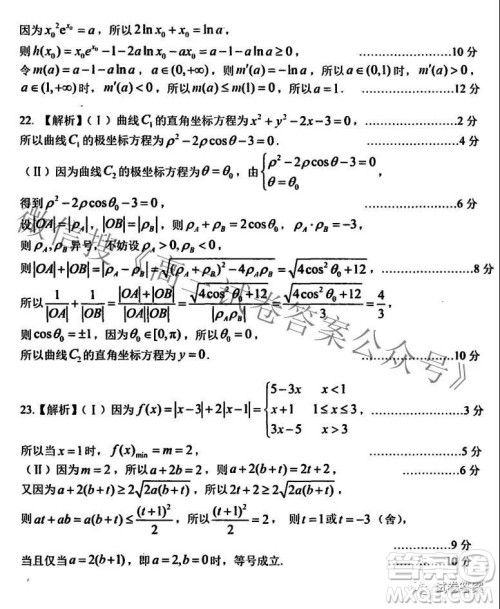 因为x₀²e^{x₀}=a，所以2ln x₀+x₀=ln a，
则h(x₀)=x₀e^{x₀}-1-2a ln x₀-ax₀=a-1-a ln a≥0， ……………10分
令m(a)=a-1-a ln a，a∈(0,+∞)，则m′(a)=-ln a，所以a∈(0,1)时，m′(a)>0，
a∈(1,+∞)时，m′(a)<0，所以m(a)≤m(1)=0，所以a=1． ……………12分
22.【解析】(Ⅰ)曲线C₁的直角坐标方程为x²+y²-2x-3=0， ……………2分
所以曲线C₁的极坐标方程为ρ²-2ρcosθ-3=0． ……………4分
(Ⅱ)因为曲线C₂的极坐标方程为θ=θ₀，由{ρ²-2ρcosθ-3=0
θ=θ₀，
得到ρ²-2ρcosθ₀-3=0．
设|OA|=|ρ_A|，|OB|=|ρ_B|，则ρ_A+ρ_B=2cosθ₀，ρ_A·ρ_B=-3，
则ρ_A,ρ_B异号，不妨设ρ_A>0,ρ_B<0，
则|OA|+|OB|=|ρ_A-ρ_B|=√((ρ_A+ρ_B)²-4ρ_Aρ_B)=√(4cos²θ₀+12)， ……………8分
所以1/|OA|+1/|OB|=(|OA|+|OB|)/(|OA||OB|)=√(4cos²θ₀+12)/|ρ_Aρ_B|=√(4cos²θ₀+12)/3=4/3，
则cosθ₀=±1，因为θ₀∈[0,π)，所以θ₀=0．
所以曲线C₂的直角坐标方程为y=0． ……………10分
23.【解析】(Ⅰ)因为f(x)=|x-3|+2|x-1|={5-3x x<1
x+1 1≤x≤3，
3x-5 x>3
……………3分
所以当x=1时，f(x)_min=m=2， ……………5分
(Ⅱ)因为m=2，所以a+2b=2，则a+2b+2t=a+2(b+t)=2t+2， ……………6分
又因为a+2(b+t)≥2√(2a(b+t))，所以2t+2≥2√(2a(b+t))，
则at+ab=a(b+t)≤(t+1)²/2，所以(t+1)²/2=2，则t=1或t=-3（舍）， ……………9分
当且仅当a=2(b+1)，即a=2,b=0时，等号成立． ……………10分
微信搜《高三试卷答案公众号》
试卷答案